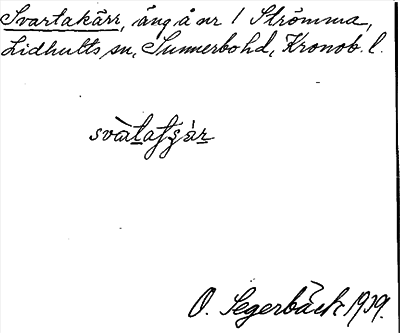 Svartakärr, äng å nr 1 Strömma,
Lidhults sn, Sunnerbo hd, Kronob. l.
O. Segerbäck 1939.